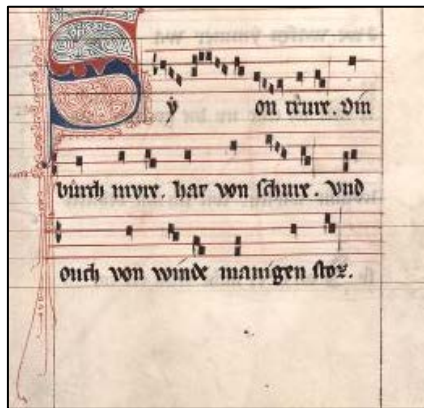 Sẏ on trůre. Din
bůrch mvre. hat von schure. Vnd
ouch von winde manigen stoz.